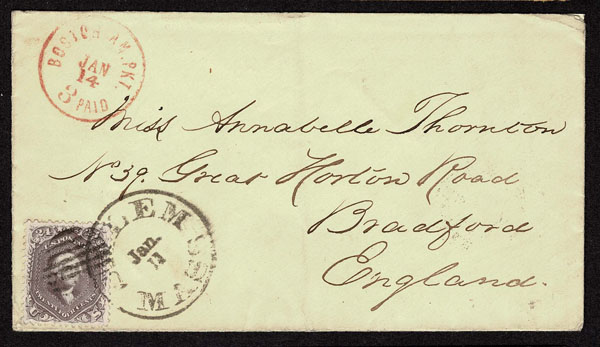 BOSTON AM. PKT.
JAN
14
3 PAID
Miss Annabelle Thornton
No 39. Great Horton Road
Bradford
England.
SALEM MASS
Jan.
11
24
U.S. POSTAGE
TWENTY FOUR CENTS